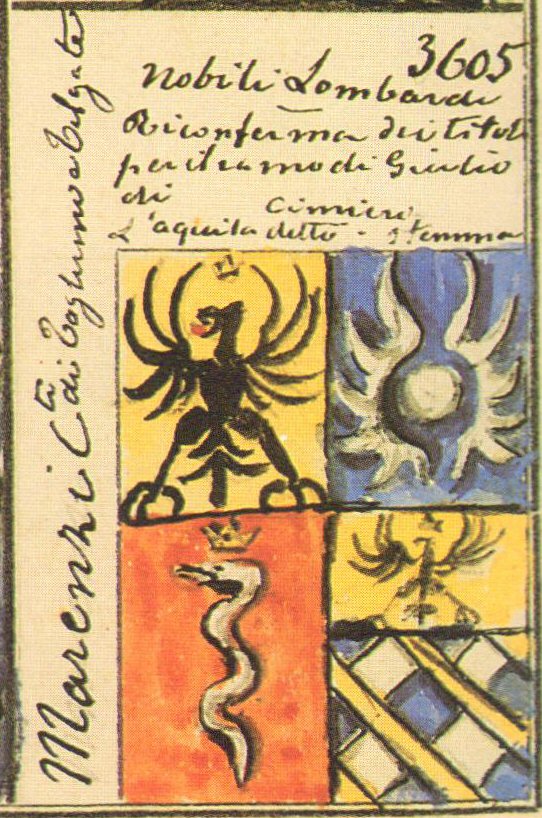 3605
Nobili Lombardi
Riconferma dei titoli
per il ramo di Giulio
di Cimiero
L'aquila detto. stemma
Marenzi Cti di